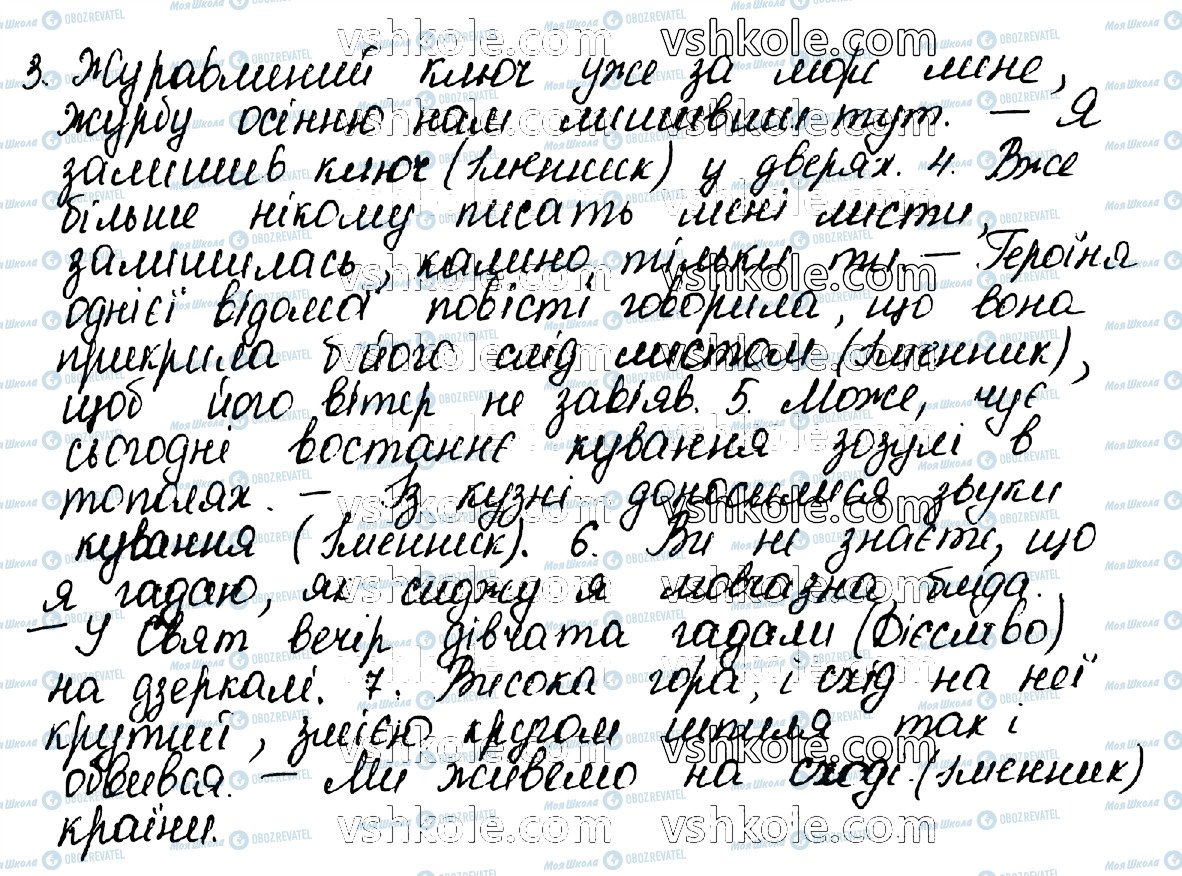 3. Журавлиний ключ уже за море лине,
журбу осінню нам лишивши тут. – Я
залишив ключ (Іменник) у дверях. 4. Вже
більше нікому писать мені листи,
залишилась, калино, тільки ти – Героїня
однієї відомої повісті говорила, що вона
прикрила б його слід листом (Іменник),
щоб його вітер не завіяв. 5. Може, чує
сьогодні востаннє кування зозулі в
тополях. – Із кузні доносилися звуки
кування (Іменник). 6. Ви не знаєте, що
я гадаю, як сиджу я мовчазна, бліда.
– У Свят вечір дівчата гадали (Дієслово)
на дзеркалі. 7. Висока гора, і схід на неї
крутий, змією кругом шпиля так і
обвивая. – Ми живемо на сході (Іменник)
країни.